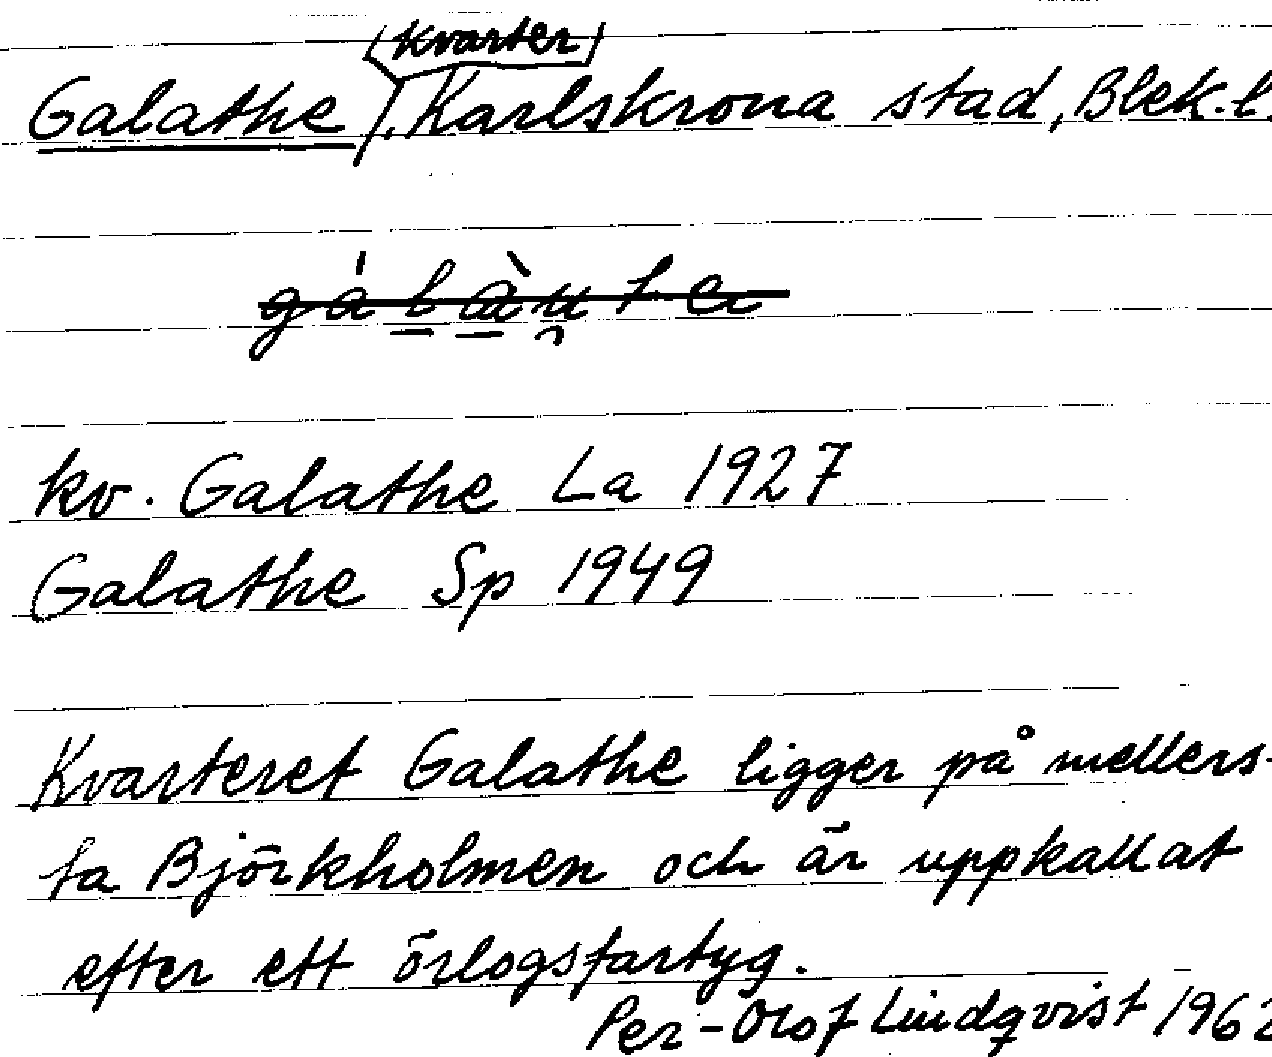 (kvarter)
Galathe, Karlskrona stad, Blek. l.
kv. Galathe La 1927
Galathe Sp 1949
Kvarteret Galathe ligger på mellers-
ta Björkholmen och är uppkallat
efter ett örlogsfartyg.
Per-Olof Lindqvist 1962